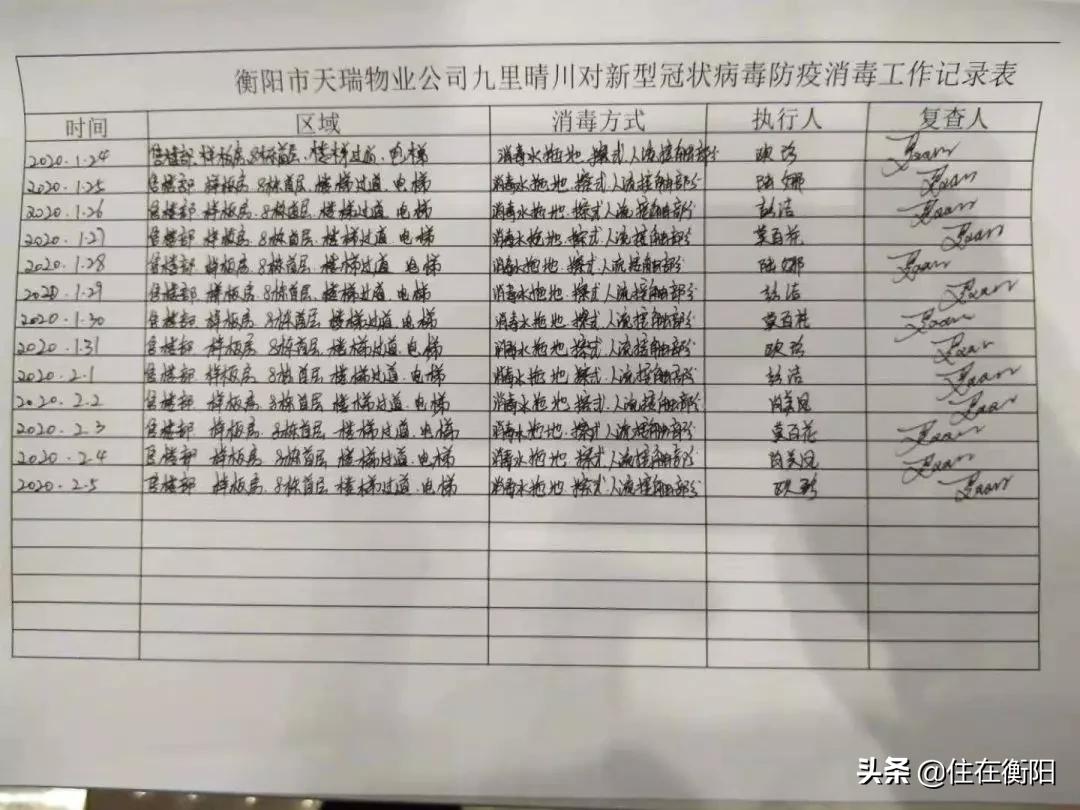 衡阳市天瑞物业公司九里晴川对新型冠状病毒防疫消毒工作记录表
时间 区域 消毒方式 执行人 复查人
2020.1.24 售楼部、样板房、8栋首层、楼梯过道、电梯 消毒水拖地、擦式人流接触部分
2020.1.25 售楼部 样板房、8栋首层、楼梯过道、电梯 消毒水拖地、擦式人流接触部分 陆娜
2020.1.26 售楼部、样板房、8栋首层、楼梯过道、电梯 消毒水拖地、擦式人流接触部分 彭洁
2020.1.27 售楼部 样板房、8栋首层、楼梯过道、电梯 消毒水拖地、擦式人流接触部分 莫百花
2020.1.28 售楼部 样板房、8栋首层、楼梯过道 电梯 消毒水拖地、擦式人流接触部分 陆娜
2020.1.29 售楼部、样板房、8栋首层、楼梯过道、电梯 消毒水拖地、擦式人流接触部分 彭洁
2020.1.30 售楼部 样板房、8栋首层 楼梯过道、电梯 消毒水拖地、擦式人流接触部分 莫百花
2020.1.31 售楼部 样板房、8栋首层、楼梯过道、电梯 消毒水拖地、擦式人流接触部分
2020.2.1 售楼部 样板房、8栋首层、楼梯过道、电梯 消毒水拖地、擦式人流接触部分 彭洁
2020.2.2 售楼部 样板房、8栋首层 楼梯过道、电梯 消毒水拖地、擦式人流接触部分
2020.2.3 售楼部 样板房、8栋首层 楼梯过道、电梯 消毒水拖地、擦式人流接触部分 莫百花
2020.2.4 售楼部 样板房、8栋首层 楼梯过道、电梯 消毒水拖地、擦式人流接触部分
2020.2.5 售楼部 样板房、8栋首层 楼梯过道、电梯 消毒水拖地、擦式人流接触部分
头条 @住在衡阳